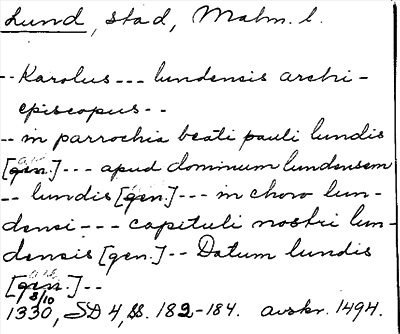 Lund, stad, Malm. l.
-- Karolus --- lundensis archi-
episcopus --
-- in parrochia beati pauli lundis
[gen.] --- apud dominum lundensem
-- lundis [gen.] --- in choro lun-
densi --- capituli nostri lun-
densis [gen.] -- Datum lundis
[gen.] --
8/10
1330, SD 4, s. 182-184. avskr. 1494.